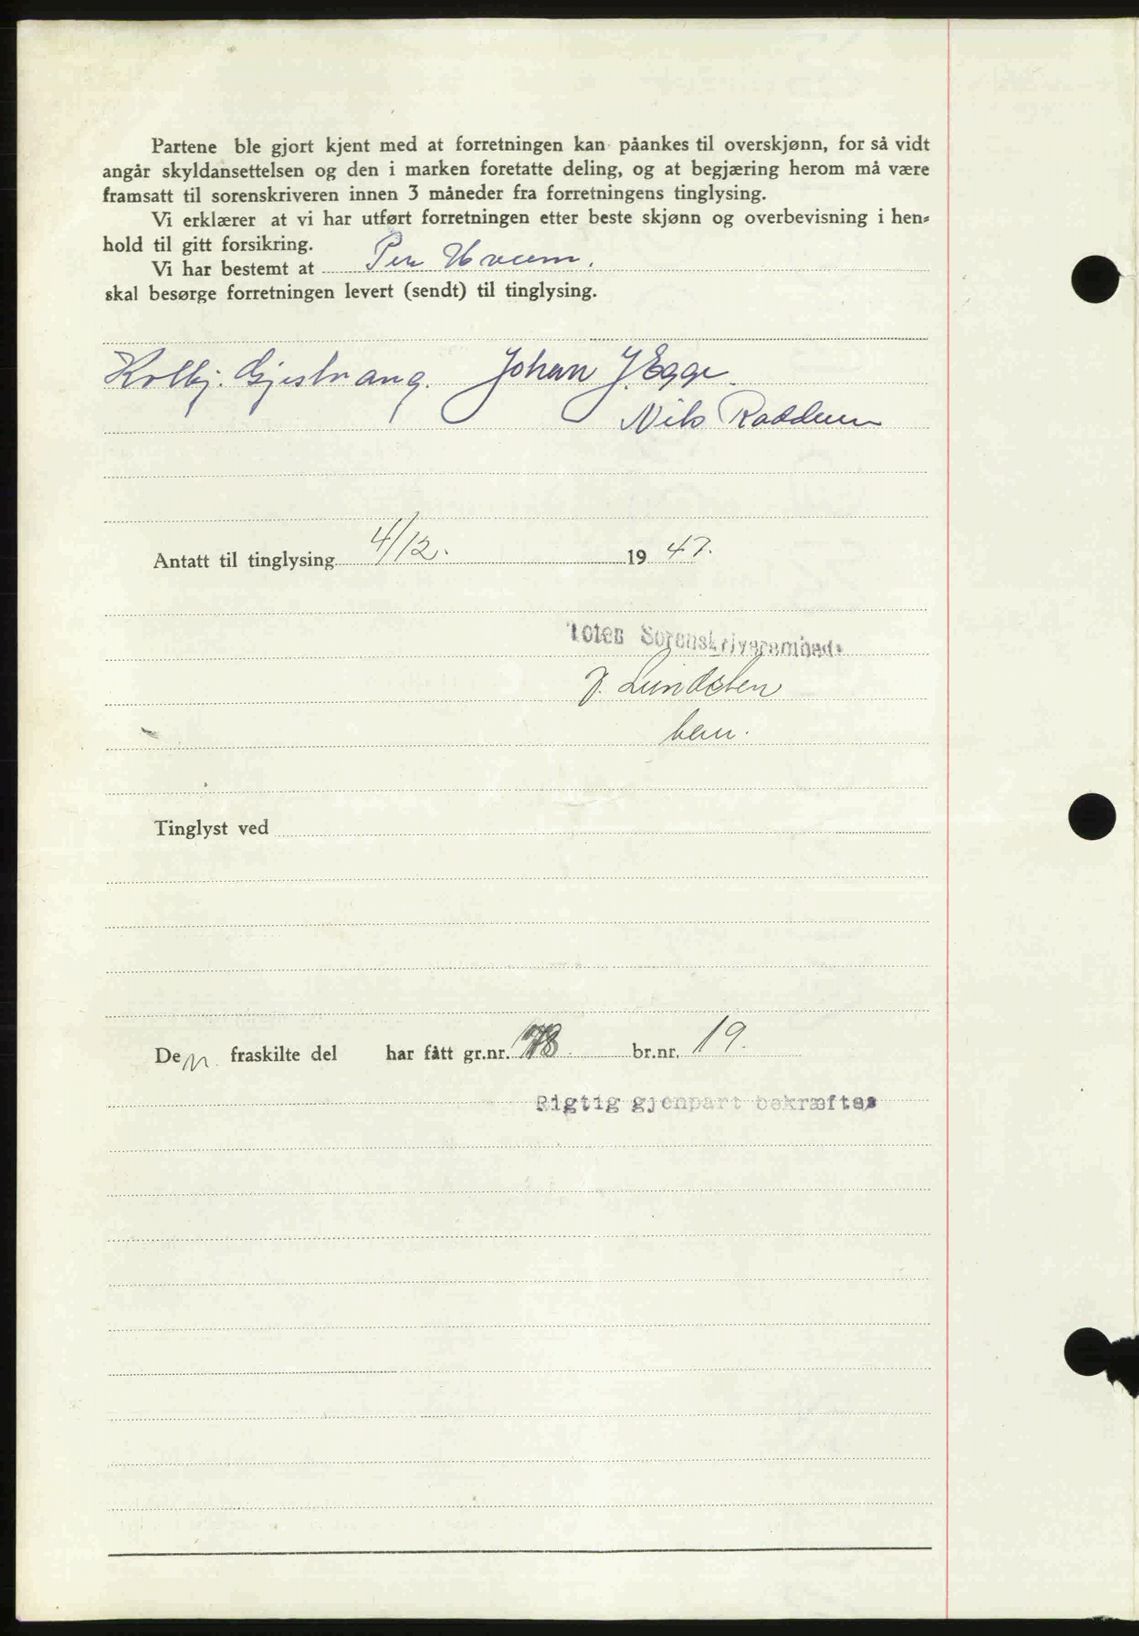 Partene ble gjort kjent med at forretningen kan påankes til overskjønn, for så vidt
angår skyldansettelsen og den i marken foretatte deling, og at begjæring herom må være
framsatt til sorenskriveren innen 3 måneder fra forretningens tinglysing.
Vi erklærer at vi har utført forretningen etter beste skjønn og overbevisning i hen-
hold til gitt forsikring.
Vi har bestemt at Per Hveem.
skal besørge forretningen levert (sendt) til tinglysing.
Kolbj. Gjestvang. Johan J. Egge.
Nils Raddum
Antatt til tinglysing 4/12. 19 47.
Toten Sorenskriverembede
J. Lundsten
bem.
Tinglyst ved
Den fraskilte del har fått gr.nr. 178. br.nr. 19.
Rigtig gjenpart bekræftes